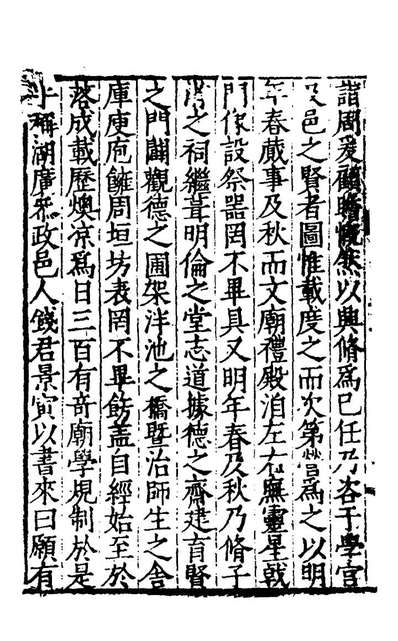 諸周爰顧瞻慨然以興脩爲己任乃咨于學官
及邑之賢者圖惟載度之而次第營爲之以明
年春蕆事及秋而文廟禮殿洎左右廡靈星戟
門像設祭器罔不畢具又明年春及秋乃脩子
之祠繼葺明倫之堂志道據德之齋建育賢
之門闢觀德之圃架泮池之橋曁治師生之舍
庫庾庖廱周垣坊表罔不畢飭蓋自經始至於
落成載歷燠凉爲日三百有奇廟學規制於是
乎稱湖廣叅政邑人錢君景寅以書來曰願有